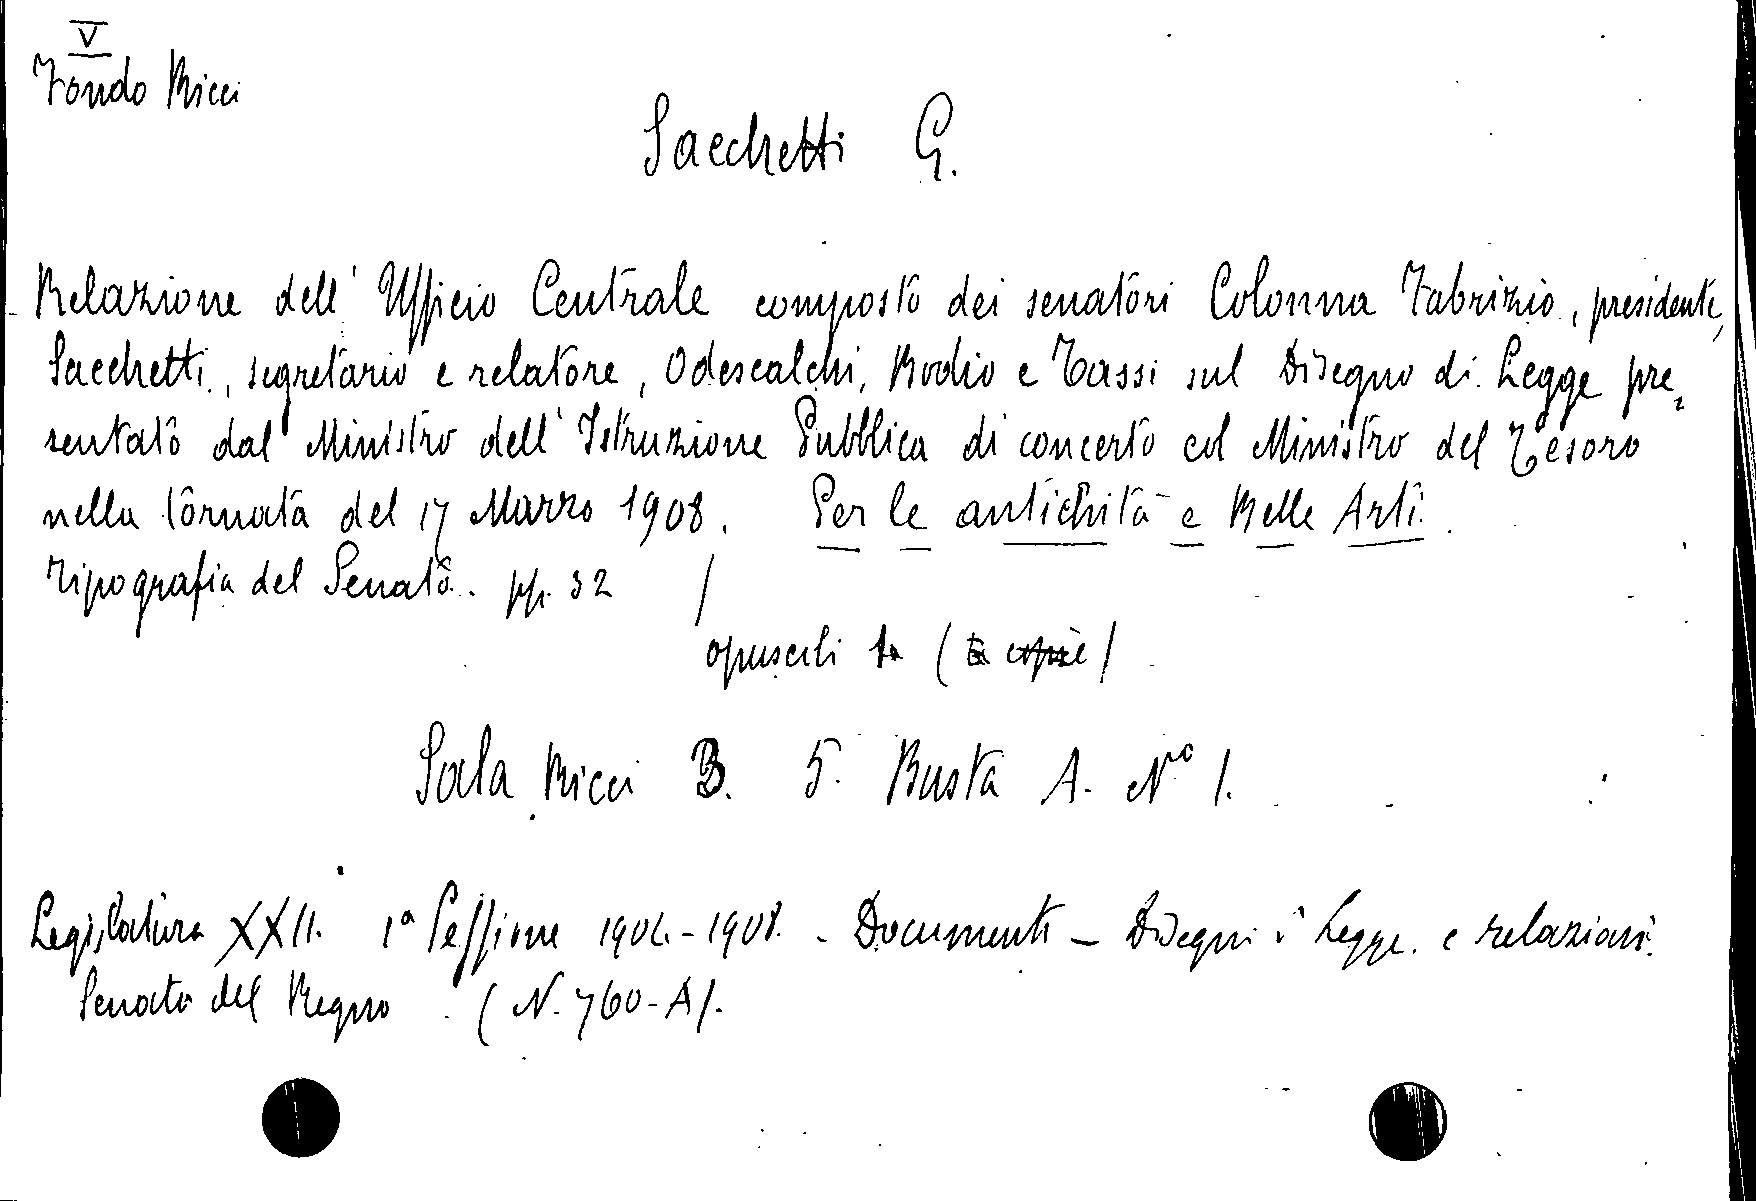 V
Fondo Ricci
Sacchetti G.
Relazione dell' Ufficio Centrale composto dei senatori Colonna Fabrizio, presidente,
Sacchetti, segretario e relatore, Odescalchi, Rodio e Tassi sul Disegno di Legge pre,
sentato dal Ministro dell' Istruzione Pubblica di concerto col Ministro del Tesoro
nella tornata del 17 Marzo 1908. Per le antichità e Belle Arti.
Tipografia del Senato. pp. 32 /
opuscoli
Sala Ricci B. 5. Busta A. N° 1.
Legislatura XXII. 1a Sessione 1904-1908. - Documenti - Disegni i Legge. e relazioni.
Senato del Regno (N. 760-A).